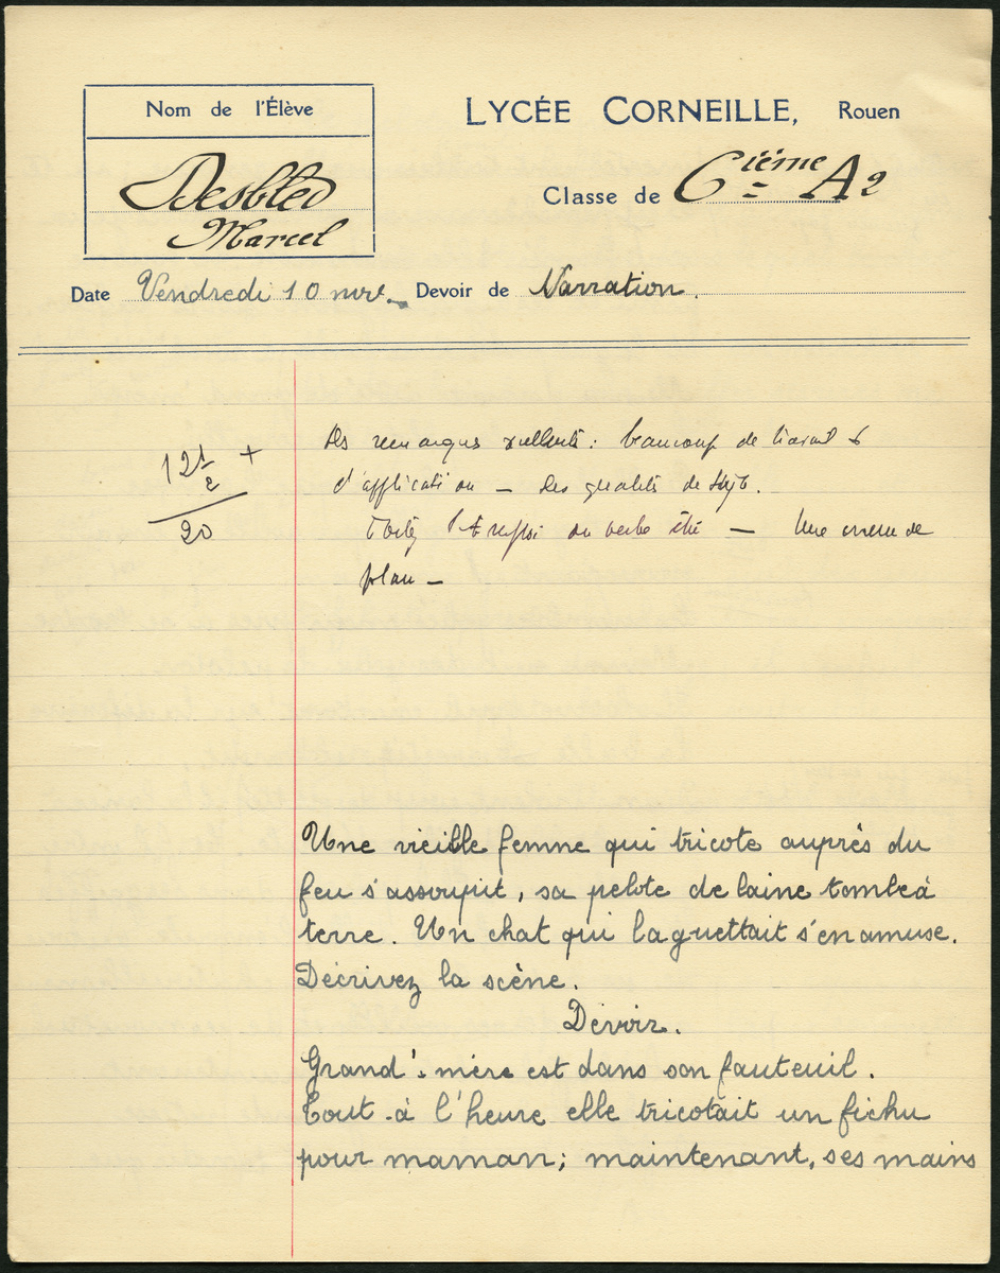 Nom de l'Élève
LYCÉE CORNEILLE, Rouen
Desbled
Marcel
Classe de 6ième A2
Date Vendredi 10 nov. Devoir de Narration.
12 1/2 +
20
Des remarques : beaucoup de travail &
d'application — des qualités de style.
Evitez l' du verbe être — Une erreur de
plan —
Une vieille femme qui tricote auprès du
feu s'assoupit, sa pelote de laine tombe à
terre. Un chat qui la guettait s'en amuse.
Décrivez la scène.
Devoir.
Grand'mère est dans son fauteuil.
Tout-à l'heure elle tricotait un fichu
pour maman; maintenant, ses mains